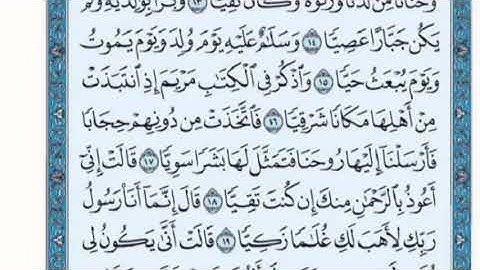 وَحَنَانًا مِّن لَّدُنَّا وَزَكَوٰةً وَكَانَ تَقِيًّا ١٣ وَبَرًّۢا بِوَٰلِدَيْهِ وَلَمْ
يَكُن جَبَّارًا عَصِيًّا ١٤ وَسَلَٰمٌ عَلَيْهِ يَوْمَ وُلِدَ وَيَوْمَ يَمُوتُ
وَيَوْمَ يُبْعَثُ حَيًّا ١٥ وَٱذْكُرْ فِى ٱلْكِتَٰبِ مَرْيَمَ إِذِ ٱنتَبَذَتْ
مِنْ أَهْلِهَا مَكَانًا شَرْقِيًّا ١٦ فَٱتَّخَذَتْ مِن دُونِهِمْ حِجَابًا
فَأَرْسَلْنَآ إِلَيْهَا رُوحَنَا فَتَمَثَّلَ لَهَا بَشَرًا سَوِيًّا ١٧ قَالَتْ إِنِّىٓ
أَعُوذُ بِٱلرَّحْمَٰنِ مِنكَ إِن كُنتَ تَقِيًّا ١٨ قَالَ إِنَّمَآ أَنَا۠ رَسُولُ
رَبِّكِ لِأَهَبَ لَكِ غُلَٰمًا زَكِيًّا ١٩ قَالَتْ أَنَّىٰ يَكُونُ لِى